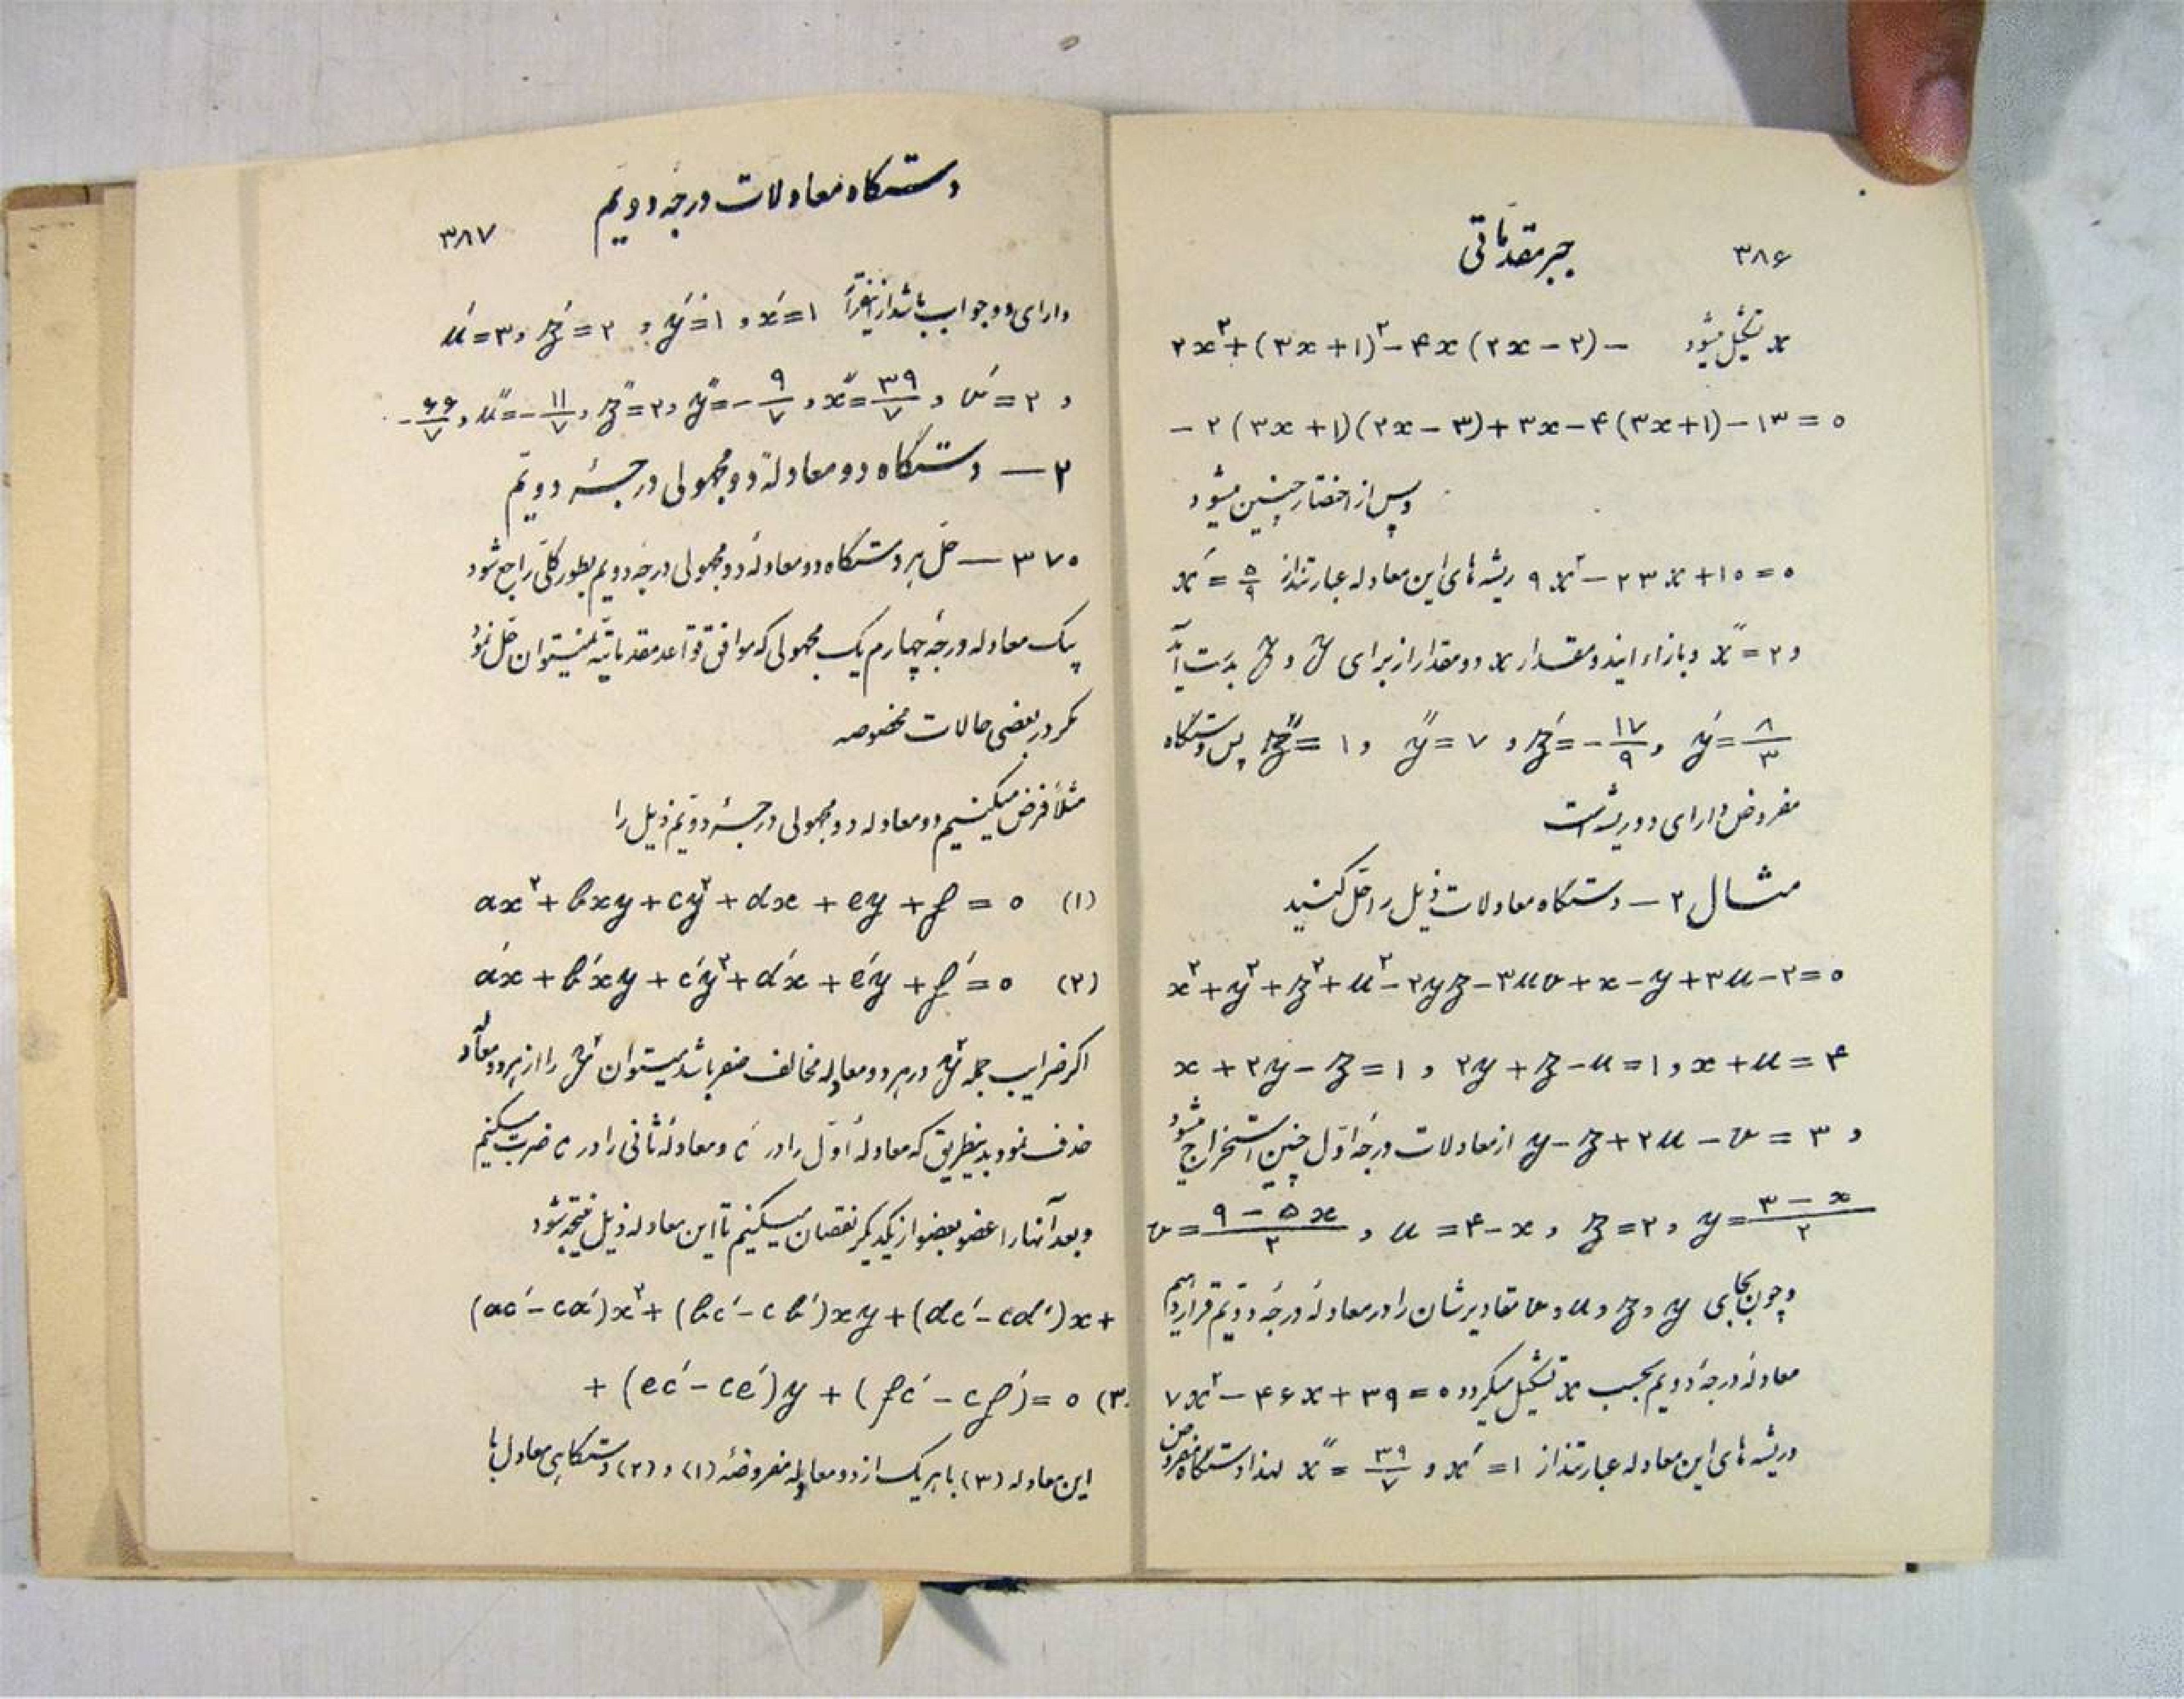 ۳۸۶
جبر مقدماتی
x تشکیل میشود ۲x²+(۳x+۱)²-۴x(۲x-۳)-
-۲(۳x+۱)(۲x-۳)+۳x-۴(۳x+۱)-۱۳=۰
و پس از اختصار چنین میشود
۹x²-۲۳x+۱۰=۰ ریشه های این معادله عبارتند از x′=۵/۹
و x″=۲ و بازاء ایندو مقدار x دو مقدار از برای y و z بدست آید
y′=۸/۳ و z′=-۱۷/۹ و y″=۷ و z″=۱ پس دستگاه
مفروض دارای دو ریشه است
مثال ۲ — دستگاه معادلات ذیل را حل کنید
x²+y²+z²+u²-۲yz-۳uv+x-y+۳u-۲=۰
x+۲y-z=۱ و ۲y+z-u=۱ و x+u=۴
و y-z+۲u-v=۳ از معادلات درجهٔ اوّل چنین استخراج میشود
y=(۳-x)/۲ و z=۲ و u=۴-x و v=(۹-۵x)/۲
و چون بجای y و z و u و v مقادیرشان را در معادلهٔ درجهٔ دویّم قرار دهیم
معادلهٔ درجهٔ دویم بحسب x تشکیل میگردد ۷x²-۴۶x+۳۹=۰
و ریشه های این معادله عبارتند از x′=۱ و x″=۳۹/۷ لهذا دستگاه مفروض
دستگاه معادلات درجهٔ دویّم
۳۸۷
دارای دو جواب باشد از اینقرار x′=۱ و y′=۱ و z′=۲ و u′=۳
و v′=۲ و x″=۳۹/۷ و y″=-۹/۷ و z″=۲ و u″=-۱۱/۷ و -۶۶/۷
۲ — دستگاه دو معادلهٔ دو مجهولی درجهٔ دویّم
۳۷۰ — حلّ هر دستگاه دو معادلهٔ دو مجهولی درجهٔ دویم بطور کلّی راجع شود
بیک معادله درجهٔ چهارم یک مجهولی که موافق قواعد مقدماتیّه نمیتوان حل نمود
مگر در بعضی حالات مخصوصه
مثلاً فرض میکنیم دو معادله دو مجهولی درجهٔ دویّم ذیل را
ax²+bxy+cy²+dx+ey+f=۰ (۱)
a′x+b′xy+c′y²+d′x+e′y+f′=۰ (۲)
اگر ضرایب جمله y² در هر دو معادله مخالف صفر باشد میتوان y² را از هر دو معادله
حذف نمود بدینطریق که معادلهٔ اوّل را در c′ و معادلهٔ ثانی را در c ضرب میکنیم
و بعد آنها را عضو بعضو از یکدیگر نقصان میکنیم تا این معادله ذیل نتیجه شود
(ac′-ca′)x²+(bc′-cb′)xy+(dc′-cd′)x+
+(ec′-ce′)y+(fc′-cf′)=۰ (۳)
این معادله (۳) با هر یک از دو معادله مفروضهٔ (۱) و (۲) دستگاهی معادل با